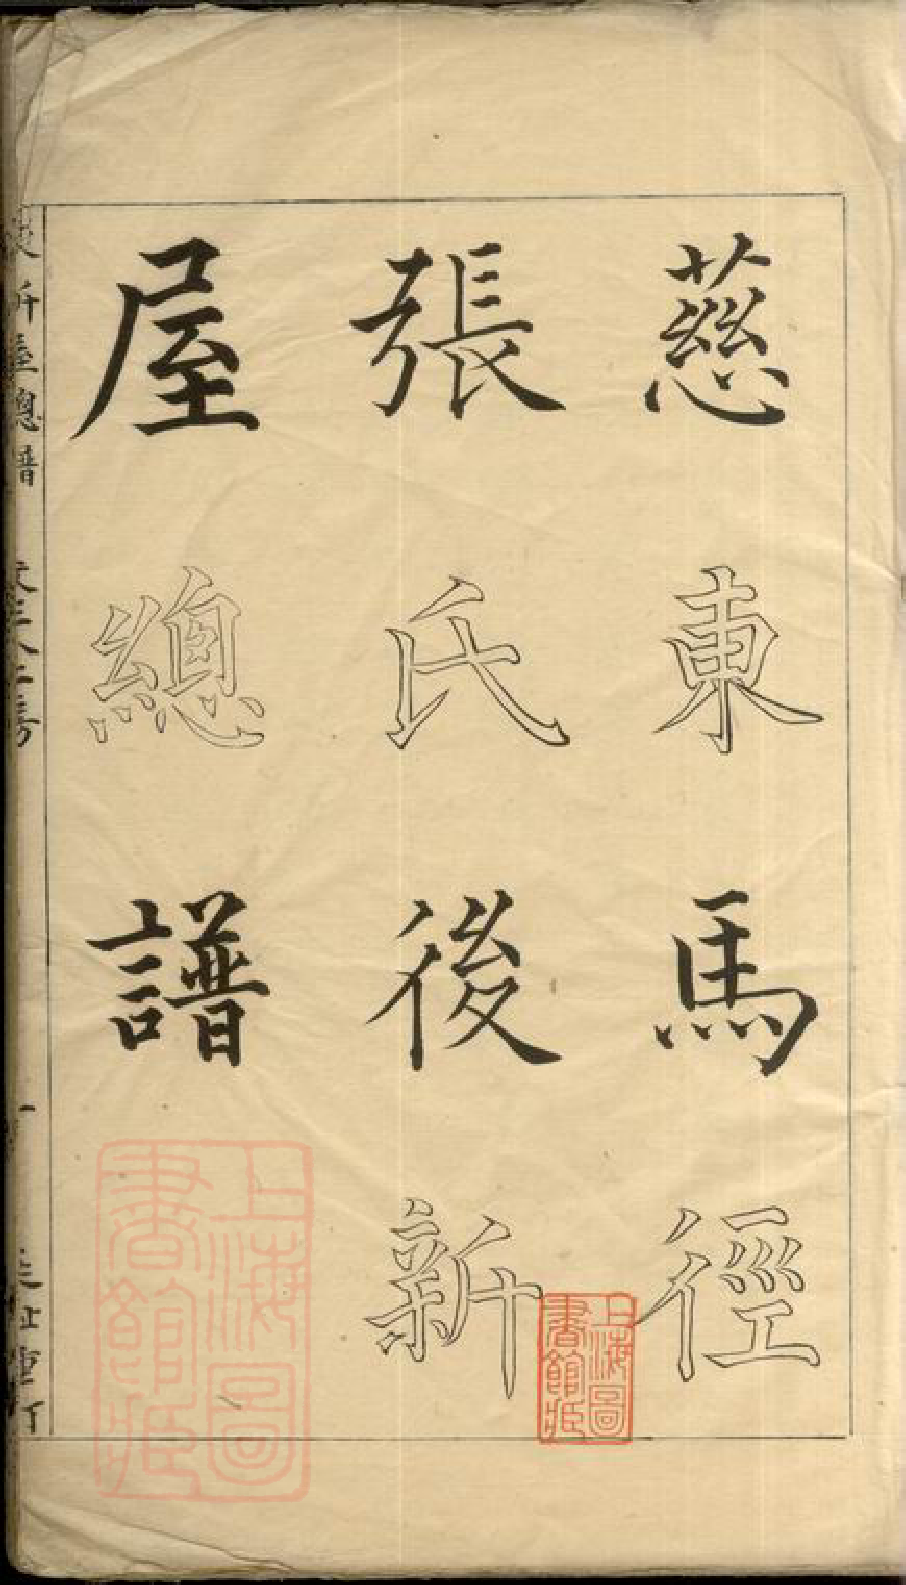 慈東馬徑
張氏後新
屋總譜
上海圖
書館藏
上海圖
書館藏
新屋總譜